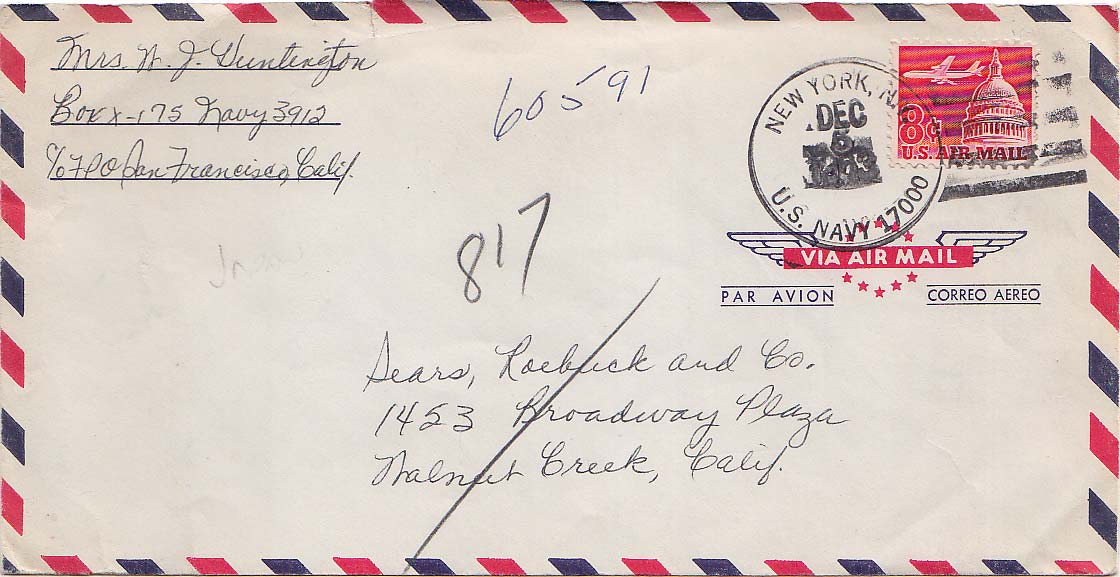 Mrs. W. J. Huntington
Box X-175 Navy 3912
c/o FPO San Francisco, Calif.
60591
817
NEW YORK, N.Y.
DEC
5
U.S. NAVY 17000
8¢
U.S. AIR MAIL
VIA AIR MAIL
PAR AVION
CORREO AEREO
Sears, Roebuck and Co.
1453 Broadway Plaza
Walnut Creek, Calif.